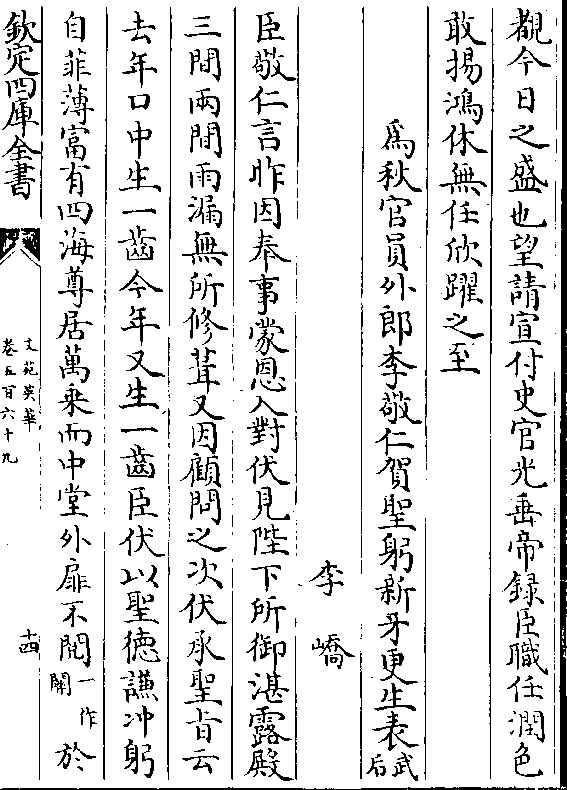 覩今日之盛也望請宣付史官光垂帝録臣職任潤色
敢揚鴻休無任欣躍之至
爲秋官員外郎李敬仁賀聖躬新牙更生表武后
李嶠
臣敬仁言昨因奉事蒙恩入對伏見陛下所御湛露殿
三間兩間雨漏無所修葺又因顧問之次伏承聖旨云
去年口中生一齒今年又生一齒臣伏以聖德謙冲躬
自菲薄富有四海尊居萬乘而中堂外扉不閱一作開於
欽定四庫全書
文苑英華
卷五百六十九
十四